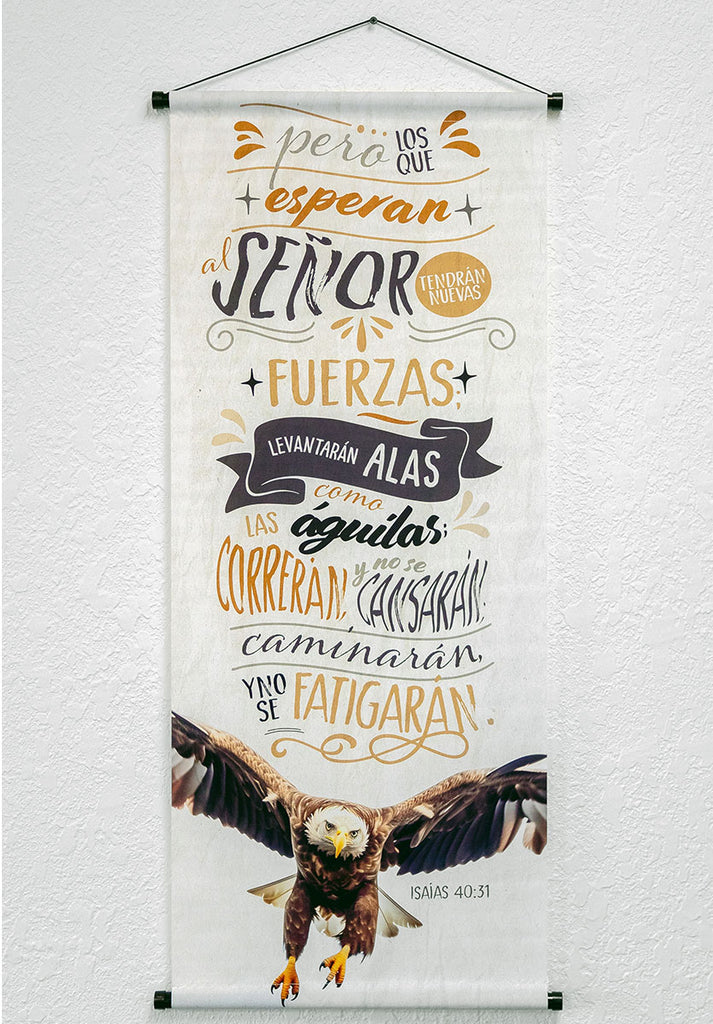 pero LOS QUE
esperan
al SEÑOR TENDRÁN NUEVAS
FUERZAS;
LEVANTARÁN ALAS
como
LAS águilas;
CORRERÁN, y no se CANSARÁN;
caminarán,
Y NO SE FATIGARÁN.
ISAÍAS 40:31